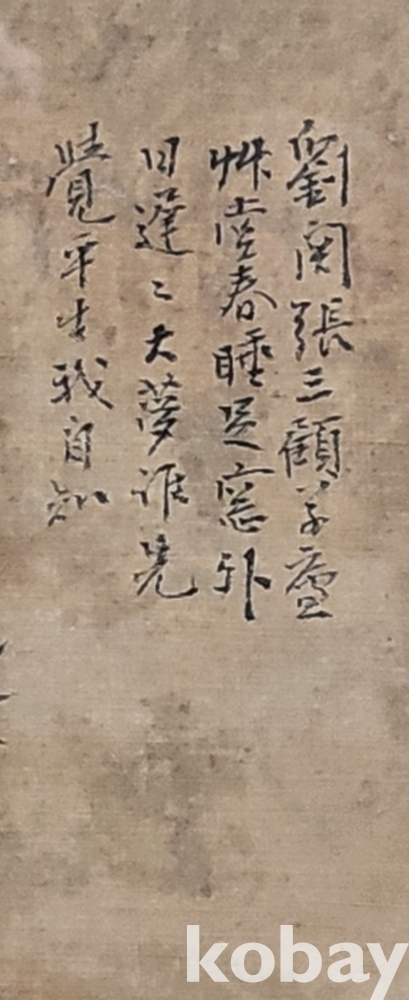 劉関張三顧草廬
草堂春睡足窓外
日遲〻大夢誰先
覺平生我自知
kobay